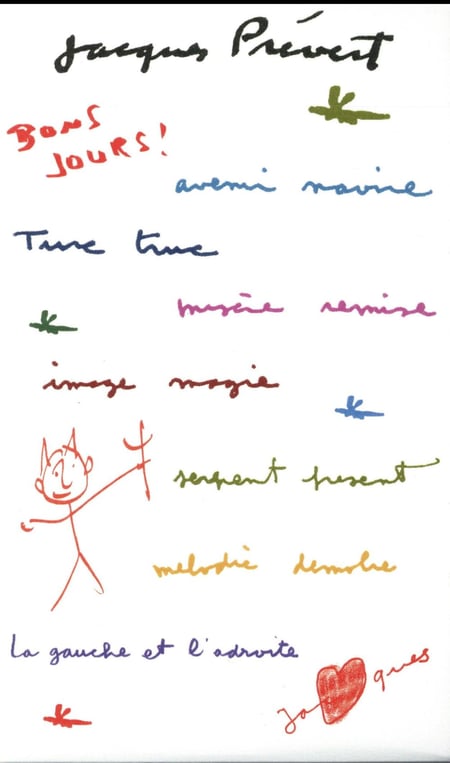 Jacques Prévert
BONS
JOURS!
avenir navire
Turc truc
misère remise
image magie
serpent present
melodie demolie
La gauche et l'adroite
Ja ques